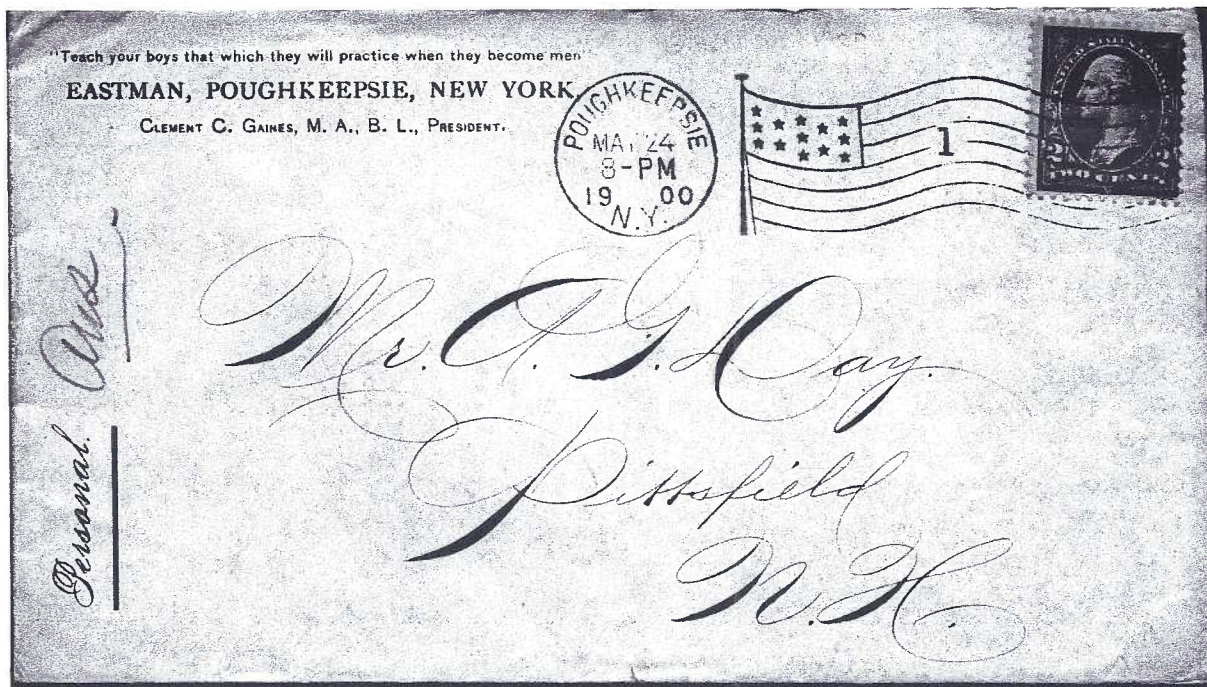 "Teach your boys that which they will practice when they become men"
EASTMAN, POUGHKEEPSIE, NEW YORK,
CLEMENT C. GAINES, M. A., B. L., PRESIDENT.
POUGHKEEPSIE
MAY 24
8-PM
19 00
N.Y.
1
TWO CENTS
Ans
Personal.
Mr. A. G. Day.
Pittsfield
N.H.